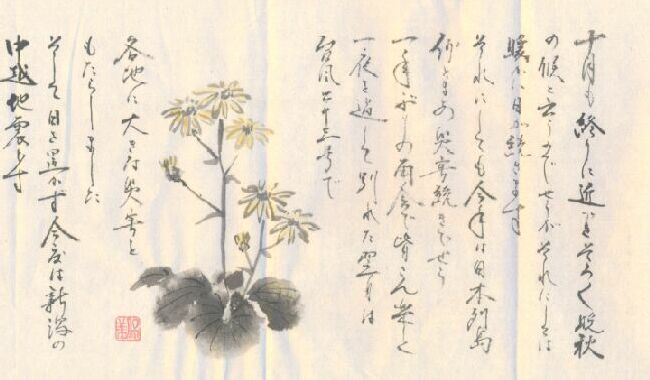 十月も終りに近づきそろそろ晩秋
の候と云うのでせうがそれにしては
暖かい日が続きます
それにしても今年は日本列島
何と云う災害続きでせう
一年ぶりの再会で皆さん楽しく
一夜を過して別れた翌日は
台風二十三号で
各地に大きな災害を
もたらしました
そして日を置かず今度は新潟の
中越地震です